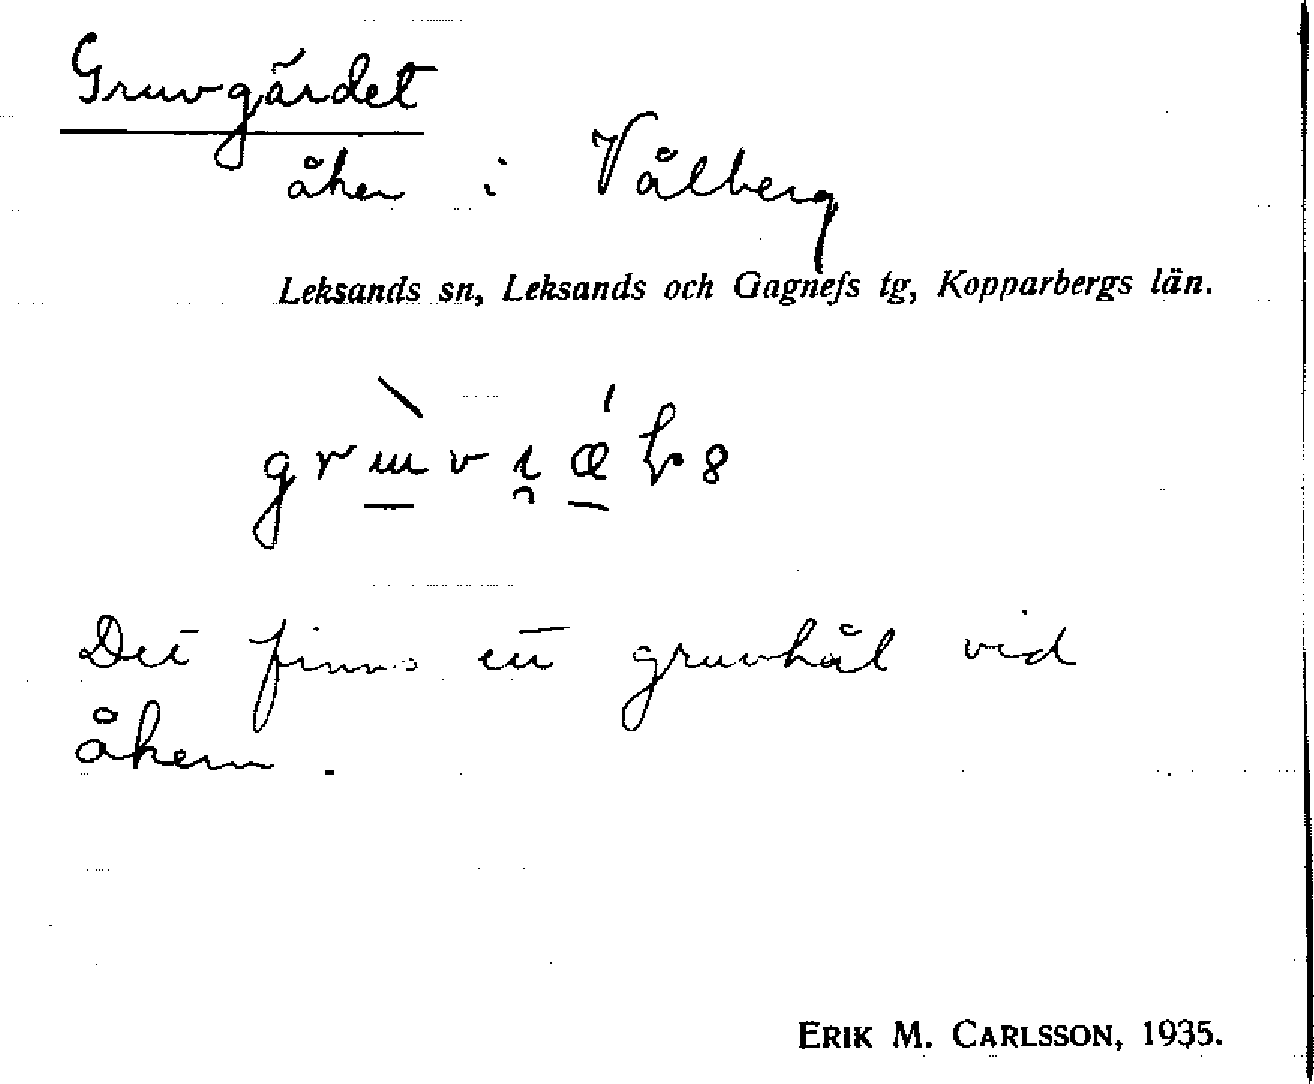 Gruvgärdet
åker i Vålberg
Leksands sn, Leksands och Gagnefs tg, Kopparbergs län.
Det finns ett gruvhål vid
åkern.
ERIK M. CARLSSON, 1935.